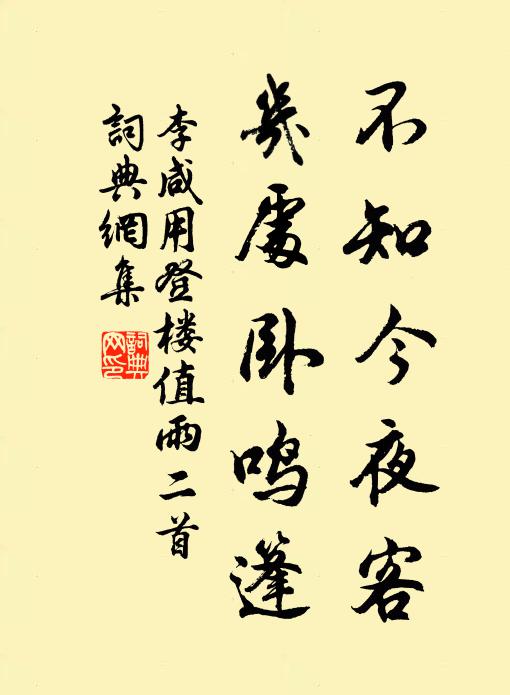 不知今夜客
幾處卧鳴篷
李咸用登楼值雨二首
詞典網集
詞典網印